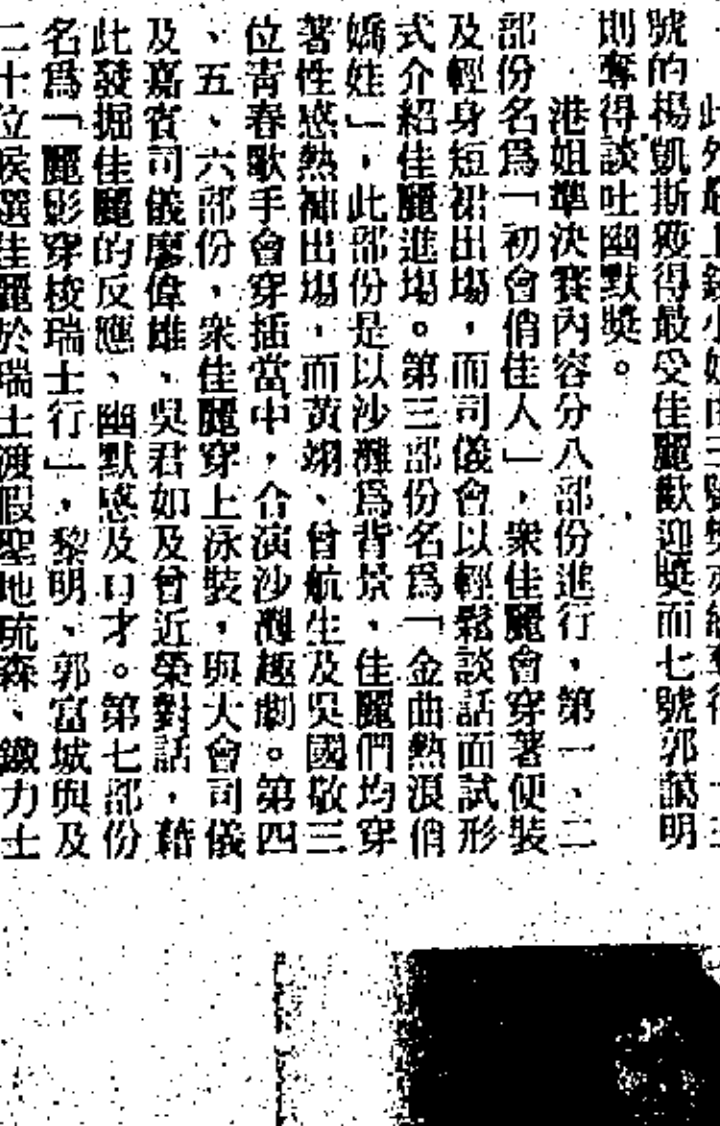 此外最上鏡小姐由三號樊亦敏奪得，十三
號的楊凱斯獲得最受佳麗歡迎獎而七號郭藹明
則奪得談吐幽默獎。
港姐準決賽內容分八部份進行，第一、二
部份名爲「初會俏佳人」，衆佳麗會穿著便裝
及輕身短裙出場，而司儀會以輕鬆談話面試形
式介紹佳麗進場。第三部份名爲「金曲熱浪俏
嬌娃」，此部份是以沙灘爲背景，佳麗們均穿
著性感熱褲出場，而黃翊、曾航生及吳國敬三
位青春歌手會穿插當中，合演沙灘趣劇。第四
、五、六部份，衆佳麗穿上泳裝，與大會司儀
及嘉賓司儀廖偉雄、吳君如及曾近榮對話，藉
此發掘佳麗的反應、幽默感及口才。第七部份
名爲「麗影穿梭瑞士行」，黎明、郭富城與及
二十位候選佳麗於瑞士渡假聖地琉森、鐵力士